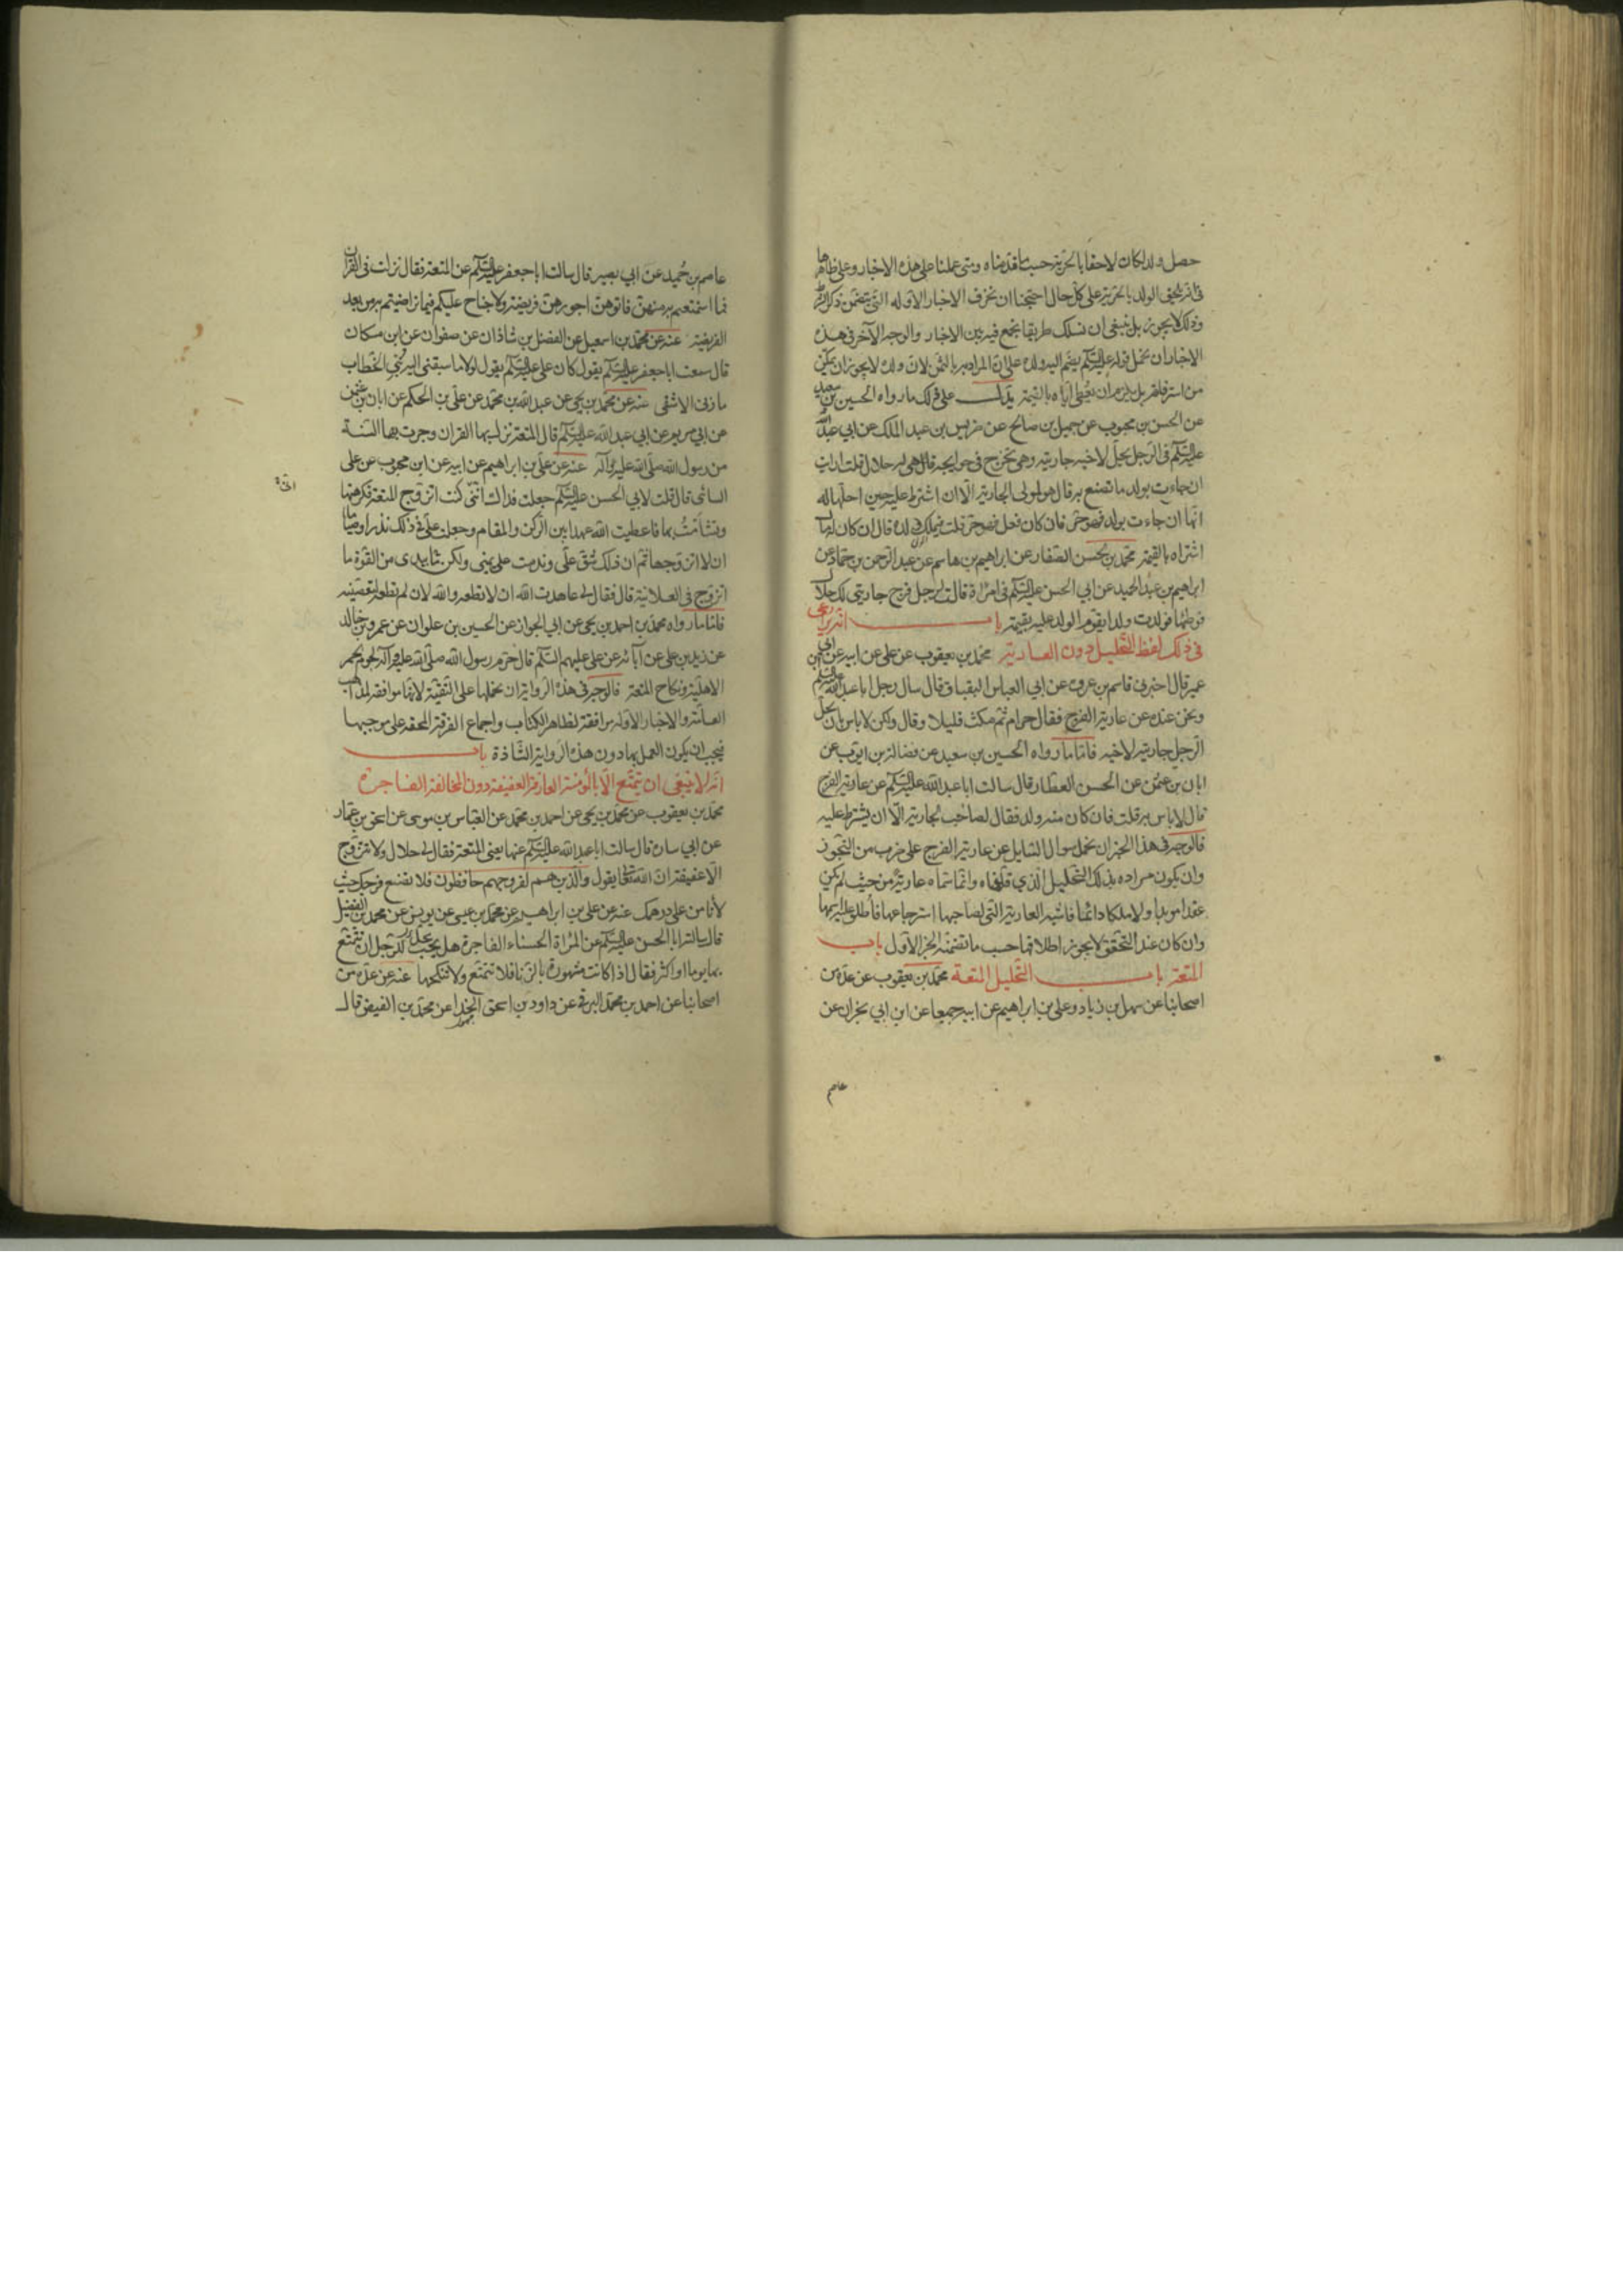 حصل ولد لكان لاحقا بالحرية حسب ما قدمناه ومتى عملنا على هذه الاخبار وعلى ظاهرها
في انه يلحق الولد بالحرية على كل حال احتجنا ان نحذف الاخبار الاوله التي يتضمن ذكر الشرط
وذلك لا يجوز بل ينبغي ان نسلك طريقا نجمع فيه بين الاخبار والوجه الآخر في هذه
الاخبار ان نحمل قوله عليه السلام يضم اليه ولده على ان المراد به بالثمن لان ولده لا يجوز ان يكون
من استرقاقه بل يلزم ان يعطى اياه بالقيمة يدل على ذلك ما رواه الحسين بن سعيد
عن الحسن بن محبوب عن جميل بن صالح عن ضريس بن عبد الملك عن ابي عبد الله
عليه السلام في الرجل يحل لاخيه جاريته وهي تخرج في حوايجه قال هي له حلال قلت ارايت
ان جاءت بولد ما تصنع به قال هو لمولى الجارية الا ان اشترط عليه حين احلها له
انها ان جاءت بولد فهو حر فان كان فعل فهو حر قلت فيملك ولده قال ان كان له مال
اشتراه بالقيمة محمد بن الحسن الصفار عن ابراهيم بن هاشم عن عبد الرحمن بن حماد عن
ابراهيم بن عبد الحميد عن ابي الحسن عليه السلام في امراة قالت لرجل فرج جاريتي لك حلال
فوطئها فولدت ولدا يقوم الولد عليه بقيمته باب انه يراعى
في ذلك لفظ التحليل دون العارية محمد بن يعقوب عن علي عن ابيه عن ابن ابي
عمير قال اخبرني قاسم بن عروة عن ابي العباس البقباق قال سال رجل ابا عبد الله عليه السلام
ونحن عنده عن عارية الفرج فقال حرام ثم مكث قليلا وقال ولكن لا باس بان يحل
الرجل جاريته لاخيه فاما ما رواه الحسين بن سعيد عن فضالة بن ايوب عن
ابان بن عثمن عن الحسن العطار قال سالت ابا عبد الله عليه السلام عن عارية الفرج
قال لا باس به قلت فان كان منه ولد فقال لصاحب الجارية الا ان يشترط عليه
فالوجه في هذا الخبر ان نحمل سوال السايل عن عارية الفرج على ضرب من التجوز
وان يكون مراده بذلك التحليل الذي قدمناه وانما سماه عارية من حيث لم يكن
عقدا موبدا ولا ملكا دائما فاشبه العارية التي لصاحبها استرجاعها فاطلق عليه اسمها
وان كان عند التحقق لا يجوز اطلاقها حسب ما تضمنه الخبر الاول باب
المتعة باب التحليل المتعة محمد بن يعقوب عن عدة من
اصحابنا عن سهل بن زياد وعلي بن ابراهيم عن ابيه جميعا عن ابن ابي نجران عن
عاصم
عاصم بن حميد عن ابي بصير قال سالت ابا جعفر عليه السلام عن المتعة فقال نزلت في القران
فما استمتعتم به منهن فاتوهن اجورهن فريضة ولا جناح عليكم فيما تراضيتم به من بعد
الفريضة عنه عن محمد بن اسمعيل عن الفضل بن شاذان عن صفوان عن ابن مسكان
قال سمعت ابا جعفر عليه السلام يقول كان علي عليه السلام يقول لولا ما سبقني اليه بني الخطاب
ما زنى الا شقى عنه عن محمد بن يحيى عن عبد الله بن محمد عن علي بن الحكم عن ابان بن عثمن
عن ابي مريم عن ابي عبد الله عليه السلام قال المتعة نزل بها القران وجرت بها السنة
من رسول الله صلى الله عليه وآله عنه عن علي بن ابراهيم عن ابيه عن ابن محبوب عن علي
السائى قال قلت لابي الحسن عليه السلام جعلت فداك انني كنت اتزوج المتعة فكرهتها
وتشأمت بها فاعطيت الله عهدا بين الركن والمقام وجعلت علي في ذلك نذرا وصياما
ان لا اتزوجها ثم ان ذلك شق علي وندمت على يميني ولكن بيدى من القوة ما
اتزوج في العلانية قال فقال لي عاهدت الله ان لا تطعه والله لان لم تطعه لتعصينه
فاما ما رواه محمد بن احمد بن يحيى عن ابي الجوزا عن الحسين بن علوان عن عمرو بن خالد
عن زيد بن علي عن آبائه عن علي عليهم السلم قال حرم رسول الله صلى الله عليه وآله لحوم الحمر
الاهلية ونكاح المتعة فالوجه في هذه الرواية ان نحملها على التقية لانها موافقة لمذاهب
العامة والاخبار الاوله موافقة لظاهر الكتاب واجماع الفرقة المحقه على موجبها
فيجب ان يكون العمل بها دون هذه الرواية الشاذة باب
انه لا ينبغي ان يتمتع الا بالمومنة العارفة العفيفة دون المخالفة الفاجرة
محمد بن يعقوب عن محمد بن يحيى عن احمد بن محمد عن العباس بن موسى عن اسحق بن عمار
عن ابي سارة قال سالت ابا عبد الله عليه السلام عنها يعني المتعة فقال لي حلال ولا تتزوج
الا عفيفة ان الله تعالى يقول والذين هم لفروجهم حافظون فلا تضع فرجك حيث
لا تامن على درهمك عنه عن علي بن ابراهيم عن محمد بن عيسى عن يونس عن محمد بن الفضيل
قال سالت ابا الحسن عليه السلام عن المراة الحسناء الفاجرة هل يجوز للرجل ان يتمتع
بها يوما او اكثر فقال اذا كانت مشهورة بالزنا فلا تتمتع ولا تنكحها عنه عن عدة من
اصحابنا عن احمد بن محمد البرقي عن داود بن اسحق الحذاء عن محمد بن الفيض قال